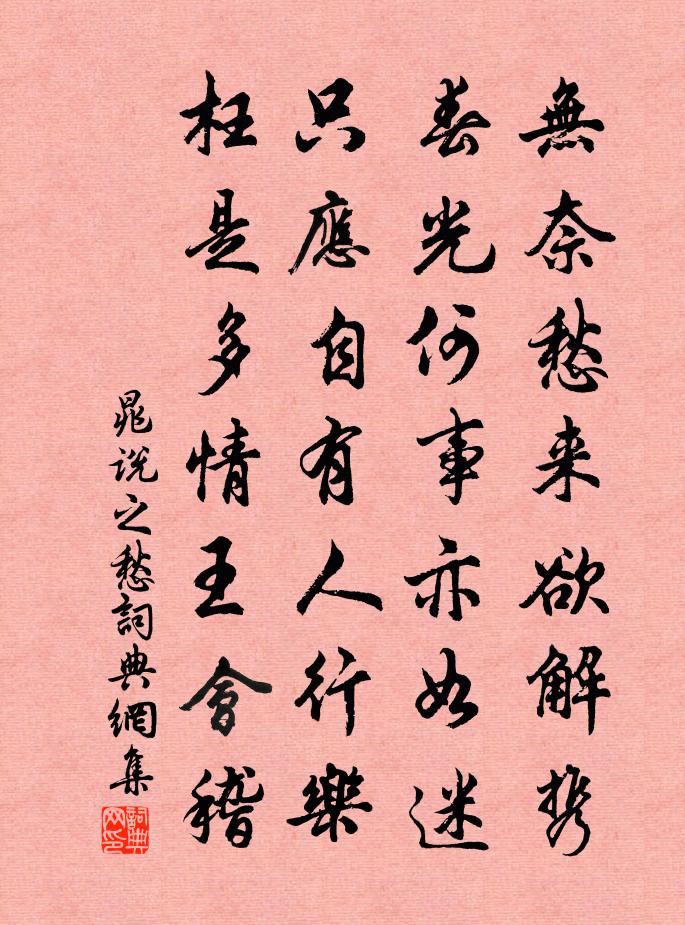 無奈愁来欲解携
春光何事亦如迷
只應自有人行樂
枉是多情王會稽
晁説之愁詞典網集
詞典網印